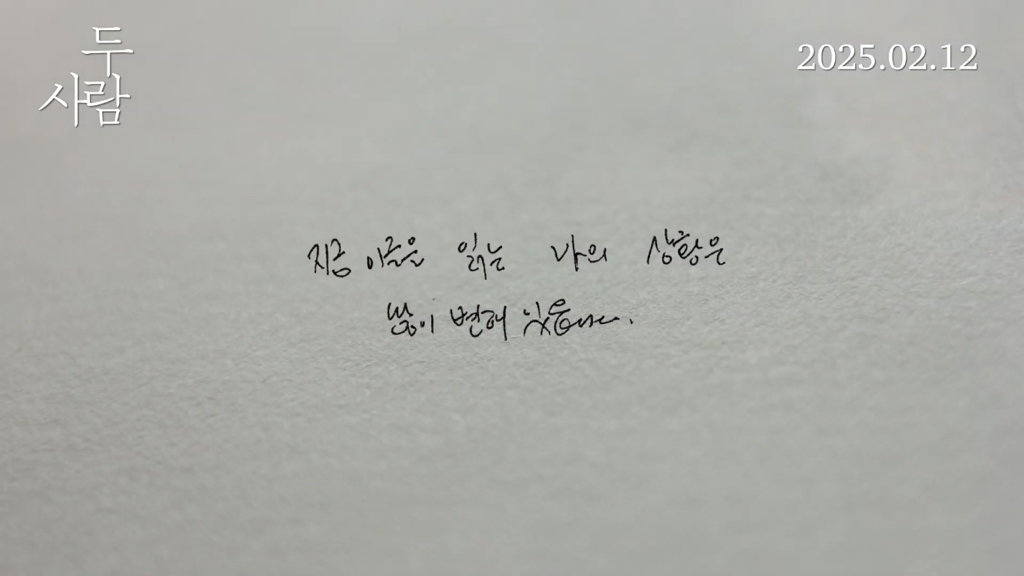 두
사람
2025.02.12
지금 이글을 읽는 나의 상황은
많이 변해 있습니다.